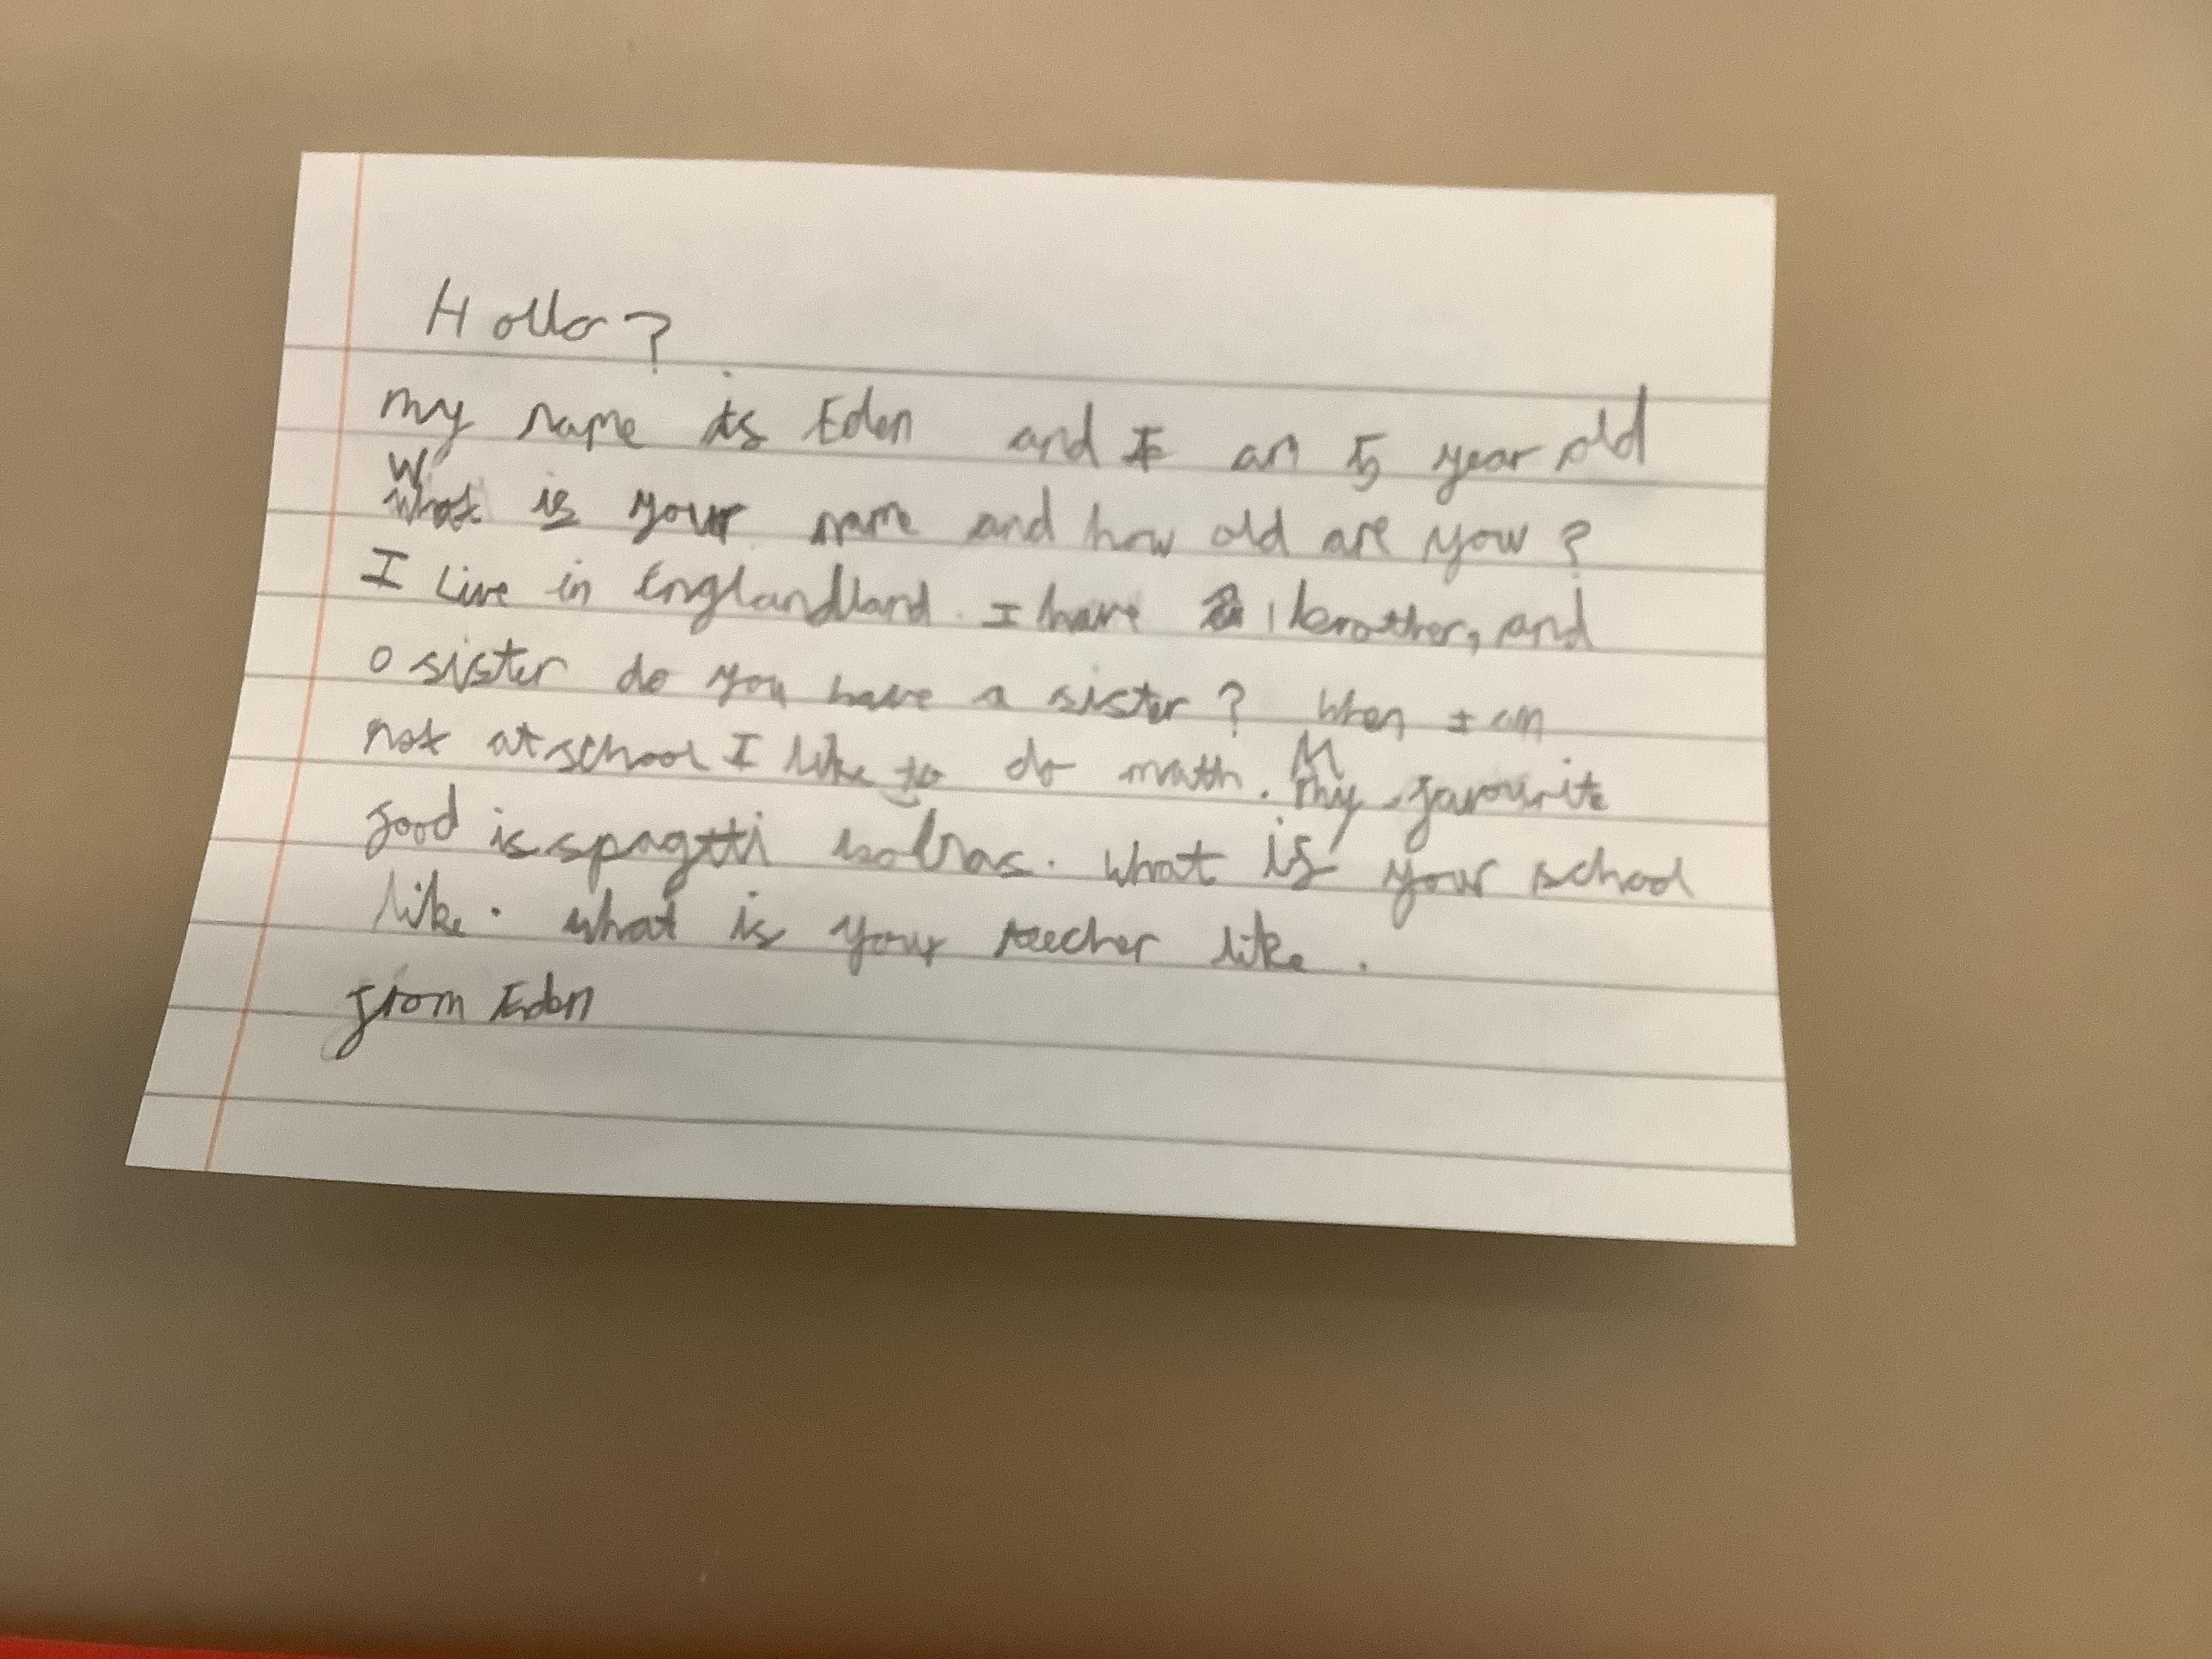 Hollo?
my name is Eden and I am 5 year old
What is your name and how old are yow?
I Live in Englandland. I have 1 brother, and
0 sister do you have a sister? When I am
not at school I like to do math. My favourite
food is spagtti bolnas. What is your school
like. what is your teecher like.
from Eden